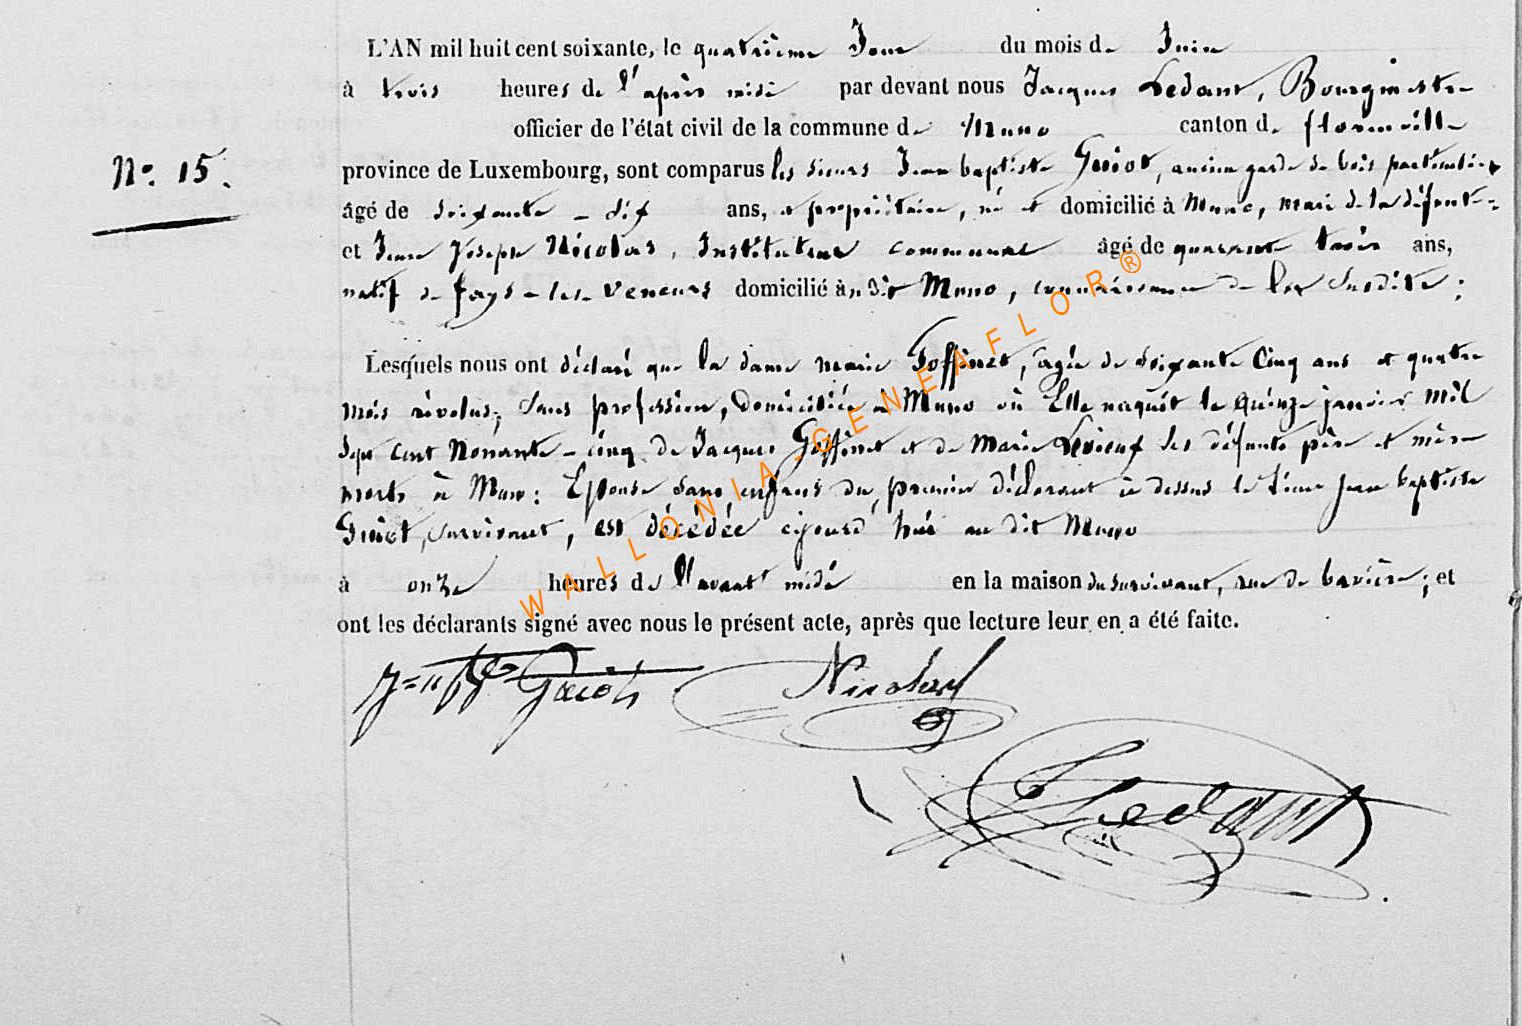 L'AN mil huit cent soixante, le quatrième Jour du mois de Juin
à trois heures de l'après midi par devant nous Jacques Ledant, Bourgmestre
officier de l'état civil de la commune de Muno canton de florenville
N° 15.
province de Luxembourg, sont comparus les sieurs Jean baptiste Guiot, ancien garde de bois particulier
âgé de soixante-dix ans, et propriétaire, né et domicilié à Muno, mari de la défunte
et Jean Joseph Nicolas, Instituteur communal âgé de quarante trois ans,
natif de fays-les-veneurs domicilié au dit Muno, connaissance de la susdite ;
Lesquels nous ont déclaré que la dame marie Goffinet, âgée de soixante Cinq ans et quatre
mois révolus, sans profession, domiciliée à Muno où Elle naquit le quinze janvier mil
sept cent Nonante-cinq de Jacques Goffinet et de Marie ses défunts père et mère
morts à Muno : Epouse sans enfans du premier déclarant ci dessus le sieur Jean baptiste
Guiot, survivant, est décédée cejourd'hui au dit Muno
à onze heures de l'avant midi en la maison du survivant, rue de bavière ; et
ont les déclarants signé avec nous le présent acte, après que lecture leur en a été faite.
Guiot Nicolas
Ledant
WALLONIA-GENEAFLOR®